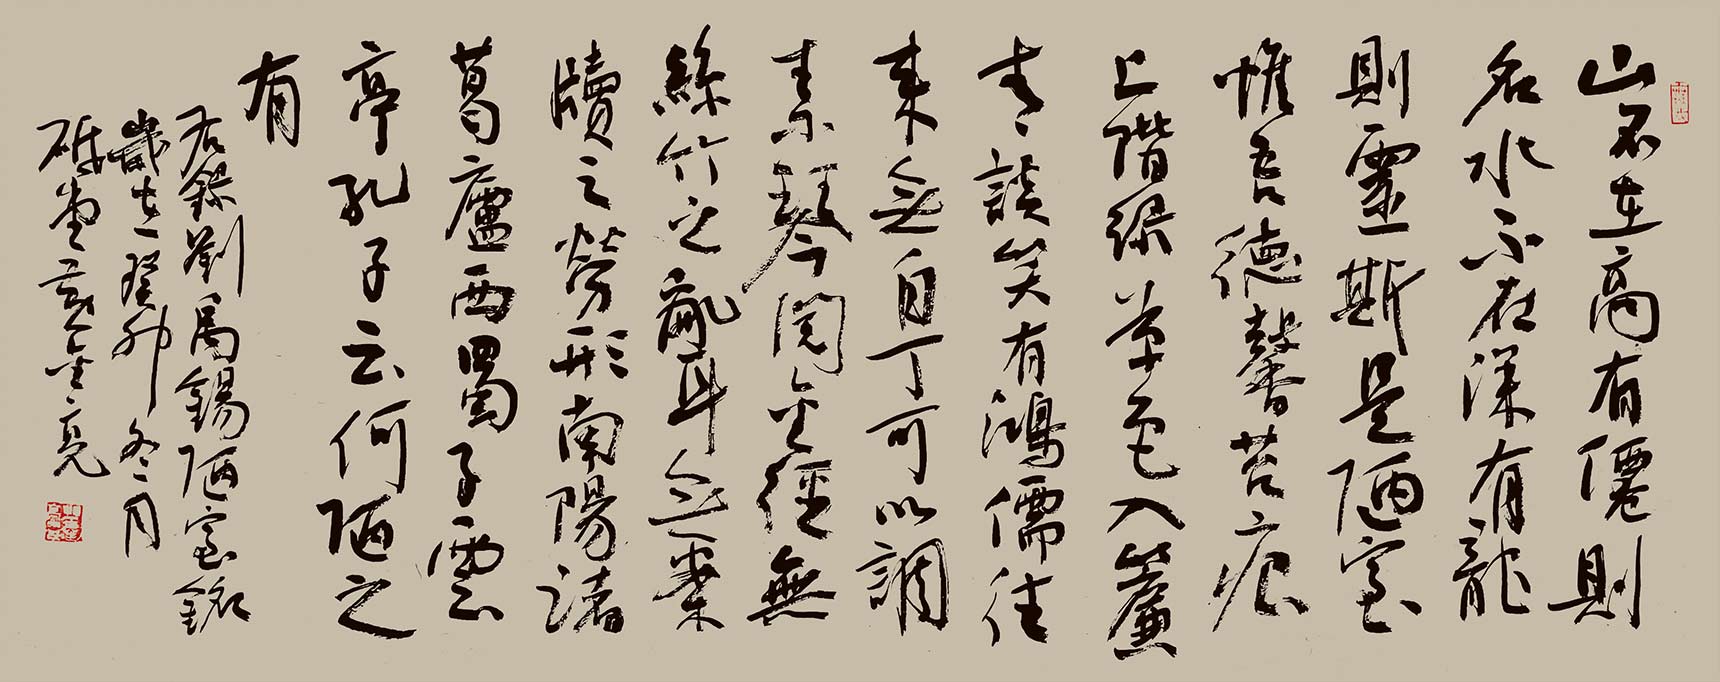 山不在高有僊則
名水不在深有龍
則靈斯是陋室
惟吾德馨苔痕
上階綠草色入簾
青談笑有鴻儒往
來無白丁可以調
素琴閱金經無
絲竹之亂耳無案
牘之勞形南陽諸
葛廬西蜀子雲
亭孔子云何陋之
有
右錄劉禹錫陋室銘
歲在癸卯冬月
堂金亮